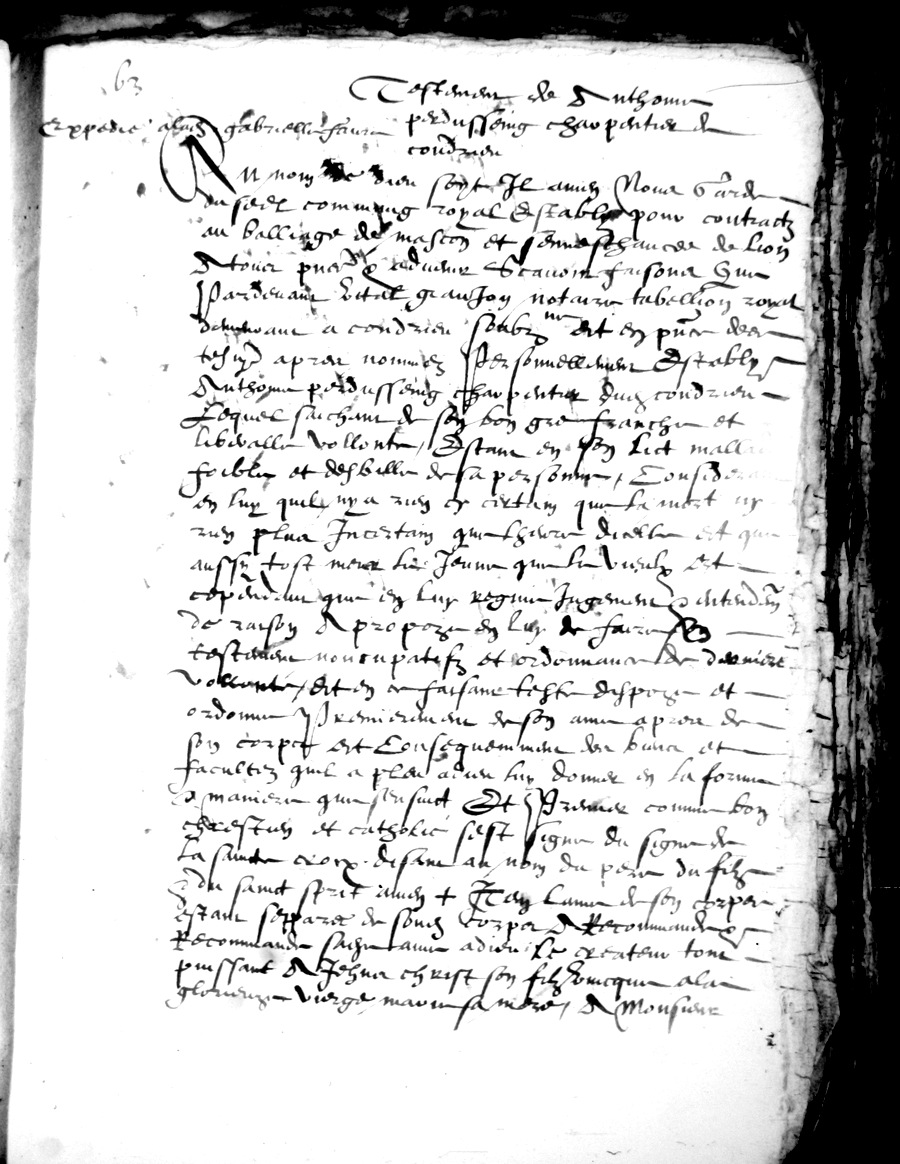 63
Testament de Anthoine
Expedie a lad gabrielle faure
perdusseing charpentier de
condrieu
Au nom de dieu soyt Il amen Nous Garde
du seel commung royal estably pour contractz
au balliage de mascon et senneschaucee de lion
A tous pntz & advenir Scavoir faisons que
Pardevant vital granjon notaire tabellion royal
demeurant a condrieu soubzne et en pnce des
tesm apres nommez Personnellement Estably
Anthoine perdusseing charpentier dud condrieu
Lequel saichant de son bon gre franche et
liberalle vollonte, Estant en son lict malla
foible et desbille de sa personne, Considera
en luy quil ny a rien cy certain que la mort ny
rien plus Incertain que lheure dicelle et que
aussy tost meur le Jeune que le vieulx et
cependant que en luy regnie Jugement & entendem
de raison A propoze en luy de faire son
testament noncupatifz et ordonnance de derniere
vollonte, et en ce faisant teste dispoze et
ordonne Premierement de son ame apres de
son corps et Consequemment des biens et
facultez quil a pleu a dieu luy donner en la forme
& maniere que sensuict Et Premier comme bon
chrestien et catholic sest signe du signe de
la saincte croix disant au nom du pere du filz
& du sainct sprit amen + Item lame de son corps
estant sepparee de sond corps A Recommande &
Recommande sadite ame a dieu le createur tout
puissant A Jehsus christ son filz unicque a la
glorieuse vierge marie sa mere, A Monsieur